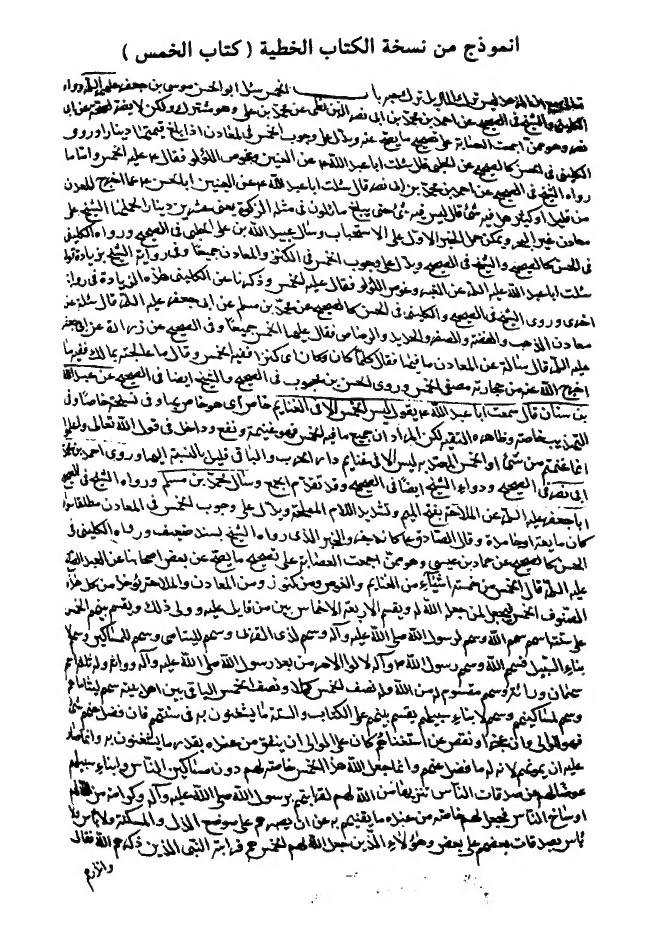 انموذج من نسخة الكتاب الخطية ( كتاب الخمس )
باب الخمس سئل ابو الحسن موسى بن جعفر عليهما
الكليني والشيخ فى الصحيح عن احمد بن محمد بن ابى نصر عن محمد بن على وهو مشترك ولكن لا يضر لصحته عن ابى
نصر وهو ممن اجمعت العصابة على تصحيح ما يصح عنه ويدل على وجوب الخمس فى المعادن اذا بلغ قيمتها دينارا وروى
الكلينى فى الحسن كالصحيح عن الحلبى قال سئلت ابا عبد الله ع عن العنبر وغوص اللؤلؤ فقال ع عليه الخمس واما ما
رواه الشيخ فى الصحيح عن احمد بن محمد بن ابى نصر قال سئلت ابا الحسن ع عما اخرج المعدن
من قليل او كثير هل فيه شئ قال ليس فيه شئ حتى يبلغ ما يكون فى مثله الزكوة يعنى عشرين دينارا الشيخ على
معادن غير البحر ويمكن حمل الخبر الاول على الاستحباب وسأل عبيد الله بن على الحلبى فى الصحيح ورواه الكلينى
فى الحسن كالصحيح والشيخ فى الصحيح ويدل على وجوب الخمس فى الكنز والمعادن جميعا وفى رواية الشيخ بزيادة
سئلت ابا عبد الله عليه السلام عن العنبر وغوص اللؤلؤ فقال عليه الخمس وذكرنا عن الكلينى هذه الزيادة فى رواية
اخرى وروى الشيخ فى الصحيح والكلينى فى الحسن كالصحيح عن محمد بن مسلم عن ابى جعفر عليه السلام قال سئلته عن
معادن الذهب والفضة والصفر والحديد والرصاص فقال عليها الخمس جميعا وفى الصحيح عن زرارة عن ابى جعفر
عليه السلام قال سألته عن المعادن ما فيها فقال كلما كان ركازا ففيه الخمس وقال ما عالجته بمالك ففيه ما
اخرج الله عنه من حجارته مصفى الخمس وروى الحسن بن محبوب فى الصحيح والشيخ ايضا فى الصحيح عن عبد الله
بن سنان قال سمعت ابا عبد الله ع يقول ليس الخمس الا فى الغنايم خاصة
التهذيب خاصة وظاهره التقية لكن المراد ان جميع ما فيه الخمس فهو غنيمة ونفع وداخل فى قول الله تعالى واعلموا
انما غنمتم من شئ او الخمس ليس الا فى غنايم دار الحرب والباقى قليل بالنسبة اليها وروى احمد بن محمد
ابى نصر فى الصحيح ورواه الشيخ ايضا فى الصحيح وقد تقدم الجمع وسأل محمد بن مسلم ورواه الشيخ فى الصحيح
ابا جعفر عليه السلام عن الملاحة بفتح الميم وتشديد اللام المملحة ويدل على وجوب الخمس فى المعادن مطلقا سواء
كان مايعة او جامدة وقال الصادق ع والخبر الذى رواه الشيخ بسند ضعيف ورواه الكلينى فى
الحسن كالصحيح عن حماد بن عيسى وهو ممن اجمعت العصابة على تصحيح ما يصح عنه عن بعض اصحابنا عن العبد الصالح
عليه السلام قال الخمس من خمسة اشياء من الغنايم والغوص ومن الكنوز ومن المعادن والملاحة يؤخذ من كل هذه
الصنوف الخمس فيجعل لمن جعله الله له ويقسم الاربعة الاخماس بين من قاتل عليه وولى ذلك ويقسم بينهم الخمس
على ستة اسهم سهم الله وسهم لرسول الله صلى الله عليه وآله وسهم لذى القربى وسهم لليتامى وسهم للمساكين وسهم
بناء السبيل فسهم الله وسهم رسول الله ص وآله لاولى الامر من بعد رسول الله صلى الله عليه وآله وراثة وله ثلثة اسهم
سهمان وراثة وسهم مقسوم له من الله وله نصف الخمس كملا ونصف الخمس الباقى بين اهل بيته سهم ليتاماهم
وسهم لمساكينهم وسهم لابناء سبيلهم يقسم بينهم على الكتاب والسنة ما يستغنون به فى سنتهم فان فضل عنهم شئ
فهو للوالى وان عجز او نقص عن استغنائهم كان على الوالى ان ينفق من عنده بقدر ما يستغنون به وانما صار
عليه ان يمونهم لان له ما فضل عنهم وانما جعل الله هذا الخمس خاصة لهم دون مساكين الناس وابناء سبيلهم
عوضا لهم من صدقات الناس تنزيها من الله لهم لقرابتهم برسول الله صلى الله عليه وآله وكرامة من الله لهم
اوساخ الناس فجعل لهم خاصة من عنده ما يغنيهم به عن ان يصيرهم فى موضع الذل والمسكنة ولا بأس
بأس بصدقات بعضهم على بعض وهؤلاء الذين جعل الله لهم الخمس هم قرابة النبى الذين ذكرهم الله فقال
وانذر